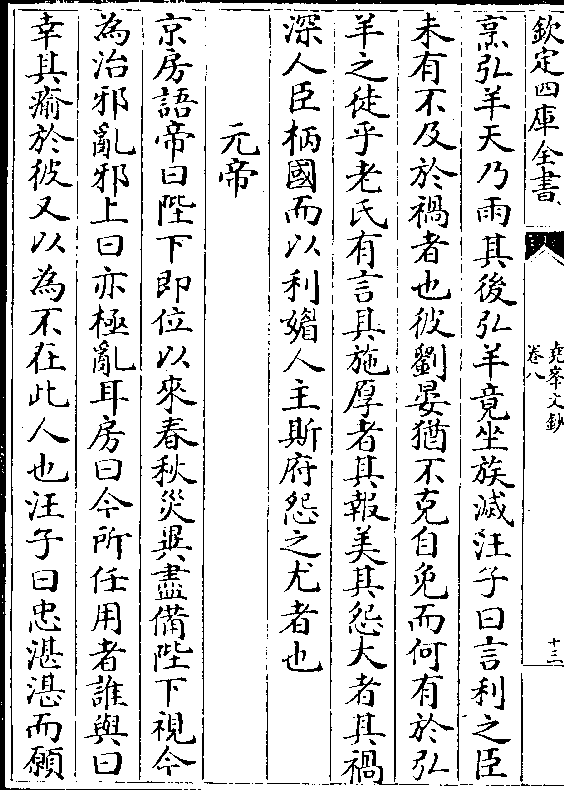 欽定四庫全書
堯峯文鈔
卷八
十三
烹弘羊天乃雨其後弘羊竟坐族滅汪子曰言利之臣
未有不及於禍者也彼劉晏猶不克自免而何有於弘
羊之徒乎老氏有言其施厚者其報美其怨大者其禍
深人臣柄國而以利媚人主斯府怨之尤者也
元帝
京房語帝曰陛下即位以來春秋災異盡備陛下視今
為治邪亂邪上曰亦極亂耳房曰今所任用者誰與曰
幸其瘉於彼又以為不在此人也汪子曰忠湛湛而願